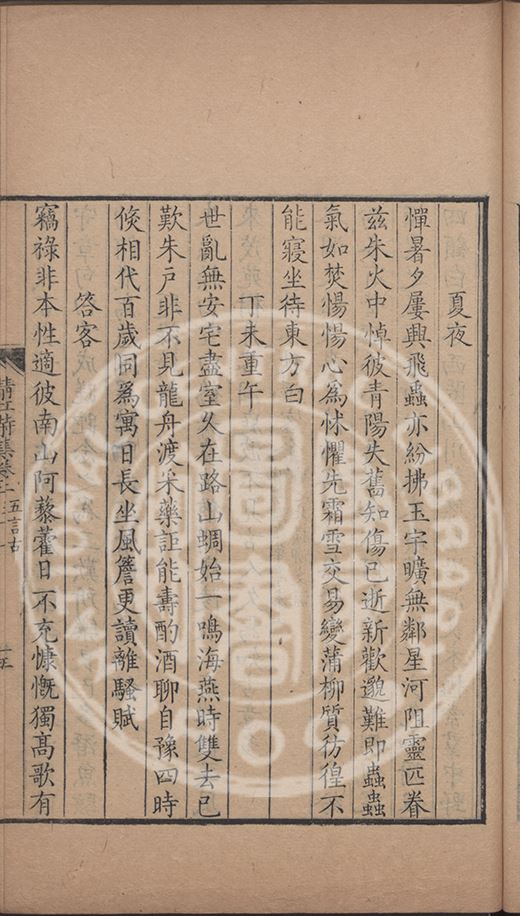 夏夜
憚暑夕屢興飛蟲亦紛拂玉宇曠無鄰星河阻靈匹眷
兹朱火中悼彼青陽失舊知傷已逝新歡邈難即蟲蟲
氣如焚惕惕心為怵懼先霜雪交易變蒲柳質彷徨不
能寢坐待東方白
丁未重午
世亂無安宅盡室久在路山蜩始一鳴海燕時雙去已
歎朱戶非不見龍舟渡采藥詎能壽酌酒聊自豫四時
倐相代百歲同為寓日長坐風簷更讀離騷賦
答客
竊祿非本性適彼南山阿藜藿日不充慷慨獨髙歌有
五言古